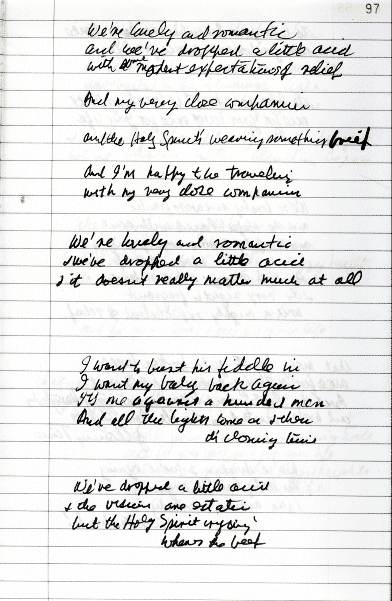 97
We're lonely and romantic
and we've dropped a little acid
with modest expectations of relief
And my very close companion
and the Holy Spirit's wearing something brief
And I'm happy to be traveling
with my very close companion
We're lonely and romantic
& we've dropped a little acid
& it doesn't really matter much at all
I want to bust his fiddle in
I want my baby back again
It's me against a hundred men
And all the lights come on & then
closing time
We've dropped a little acid
& the visions are ecstatic
but the Holy Spirit crying'
Where's the beef